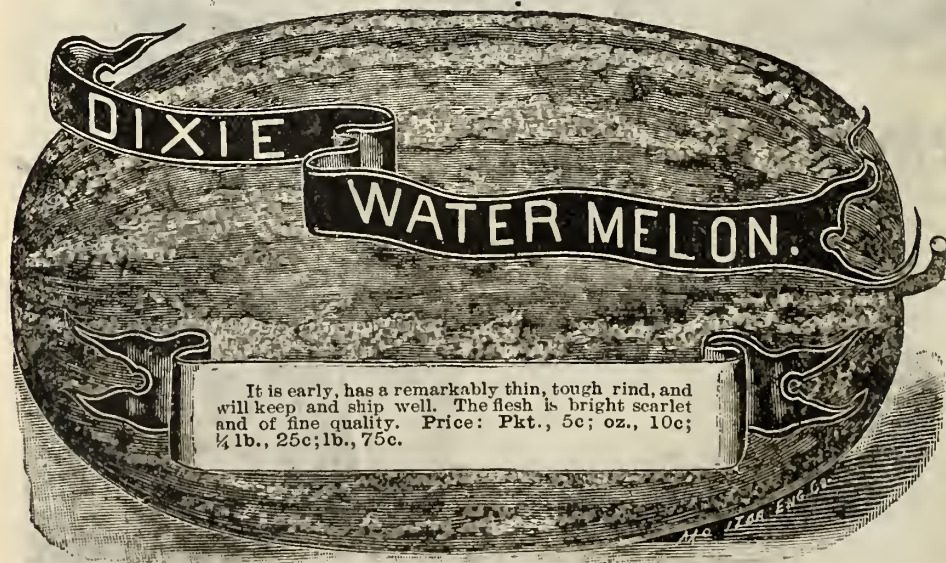 DIXIE
WATER MELON.
It is early, has a remarkably thin, tough rind, and
will keep and ship well. The flesh is bright scarlet
and of fine quality. Price: Pkt., 5c; oz., 10c;
¼ lb., 25c; lb., 75c.
ENG Co.